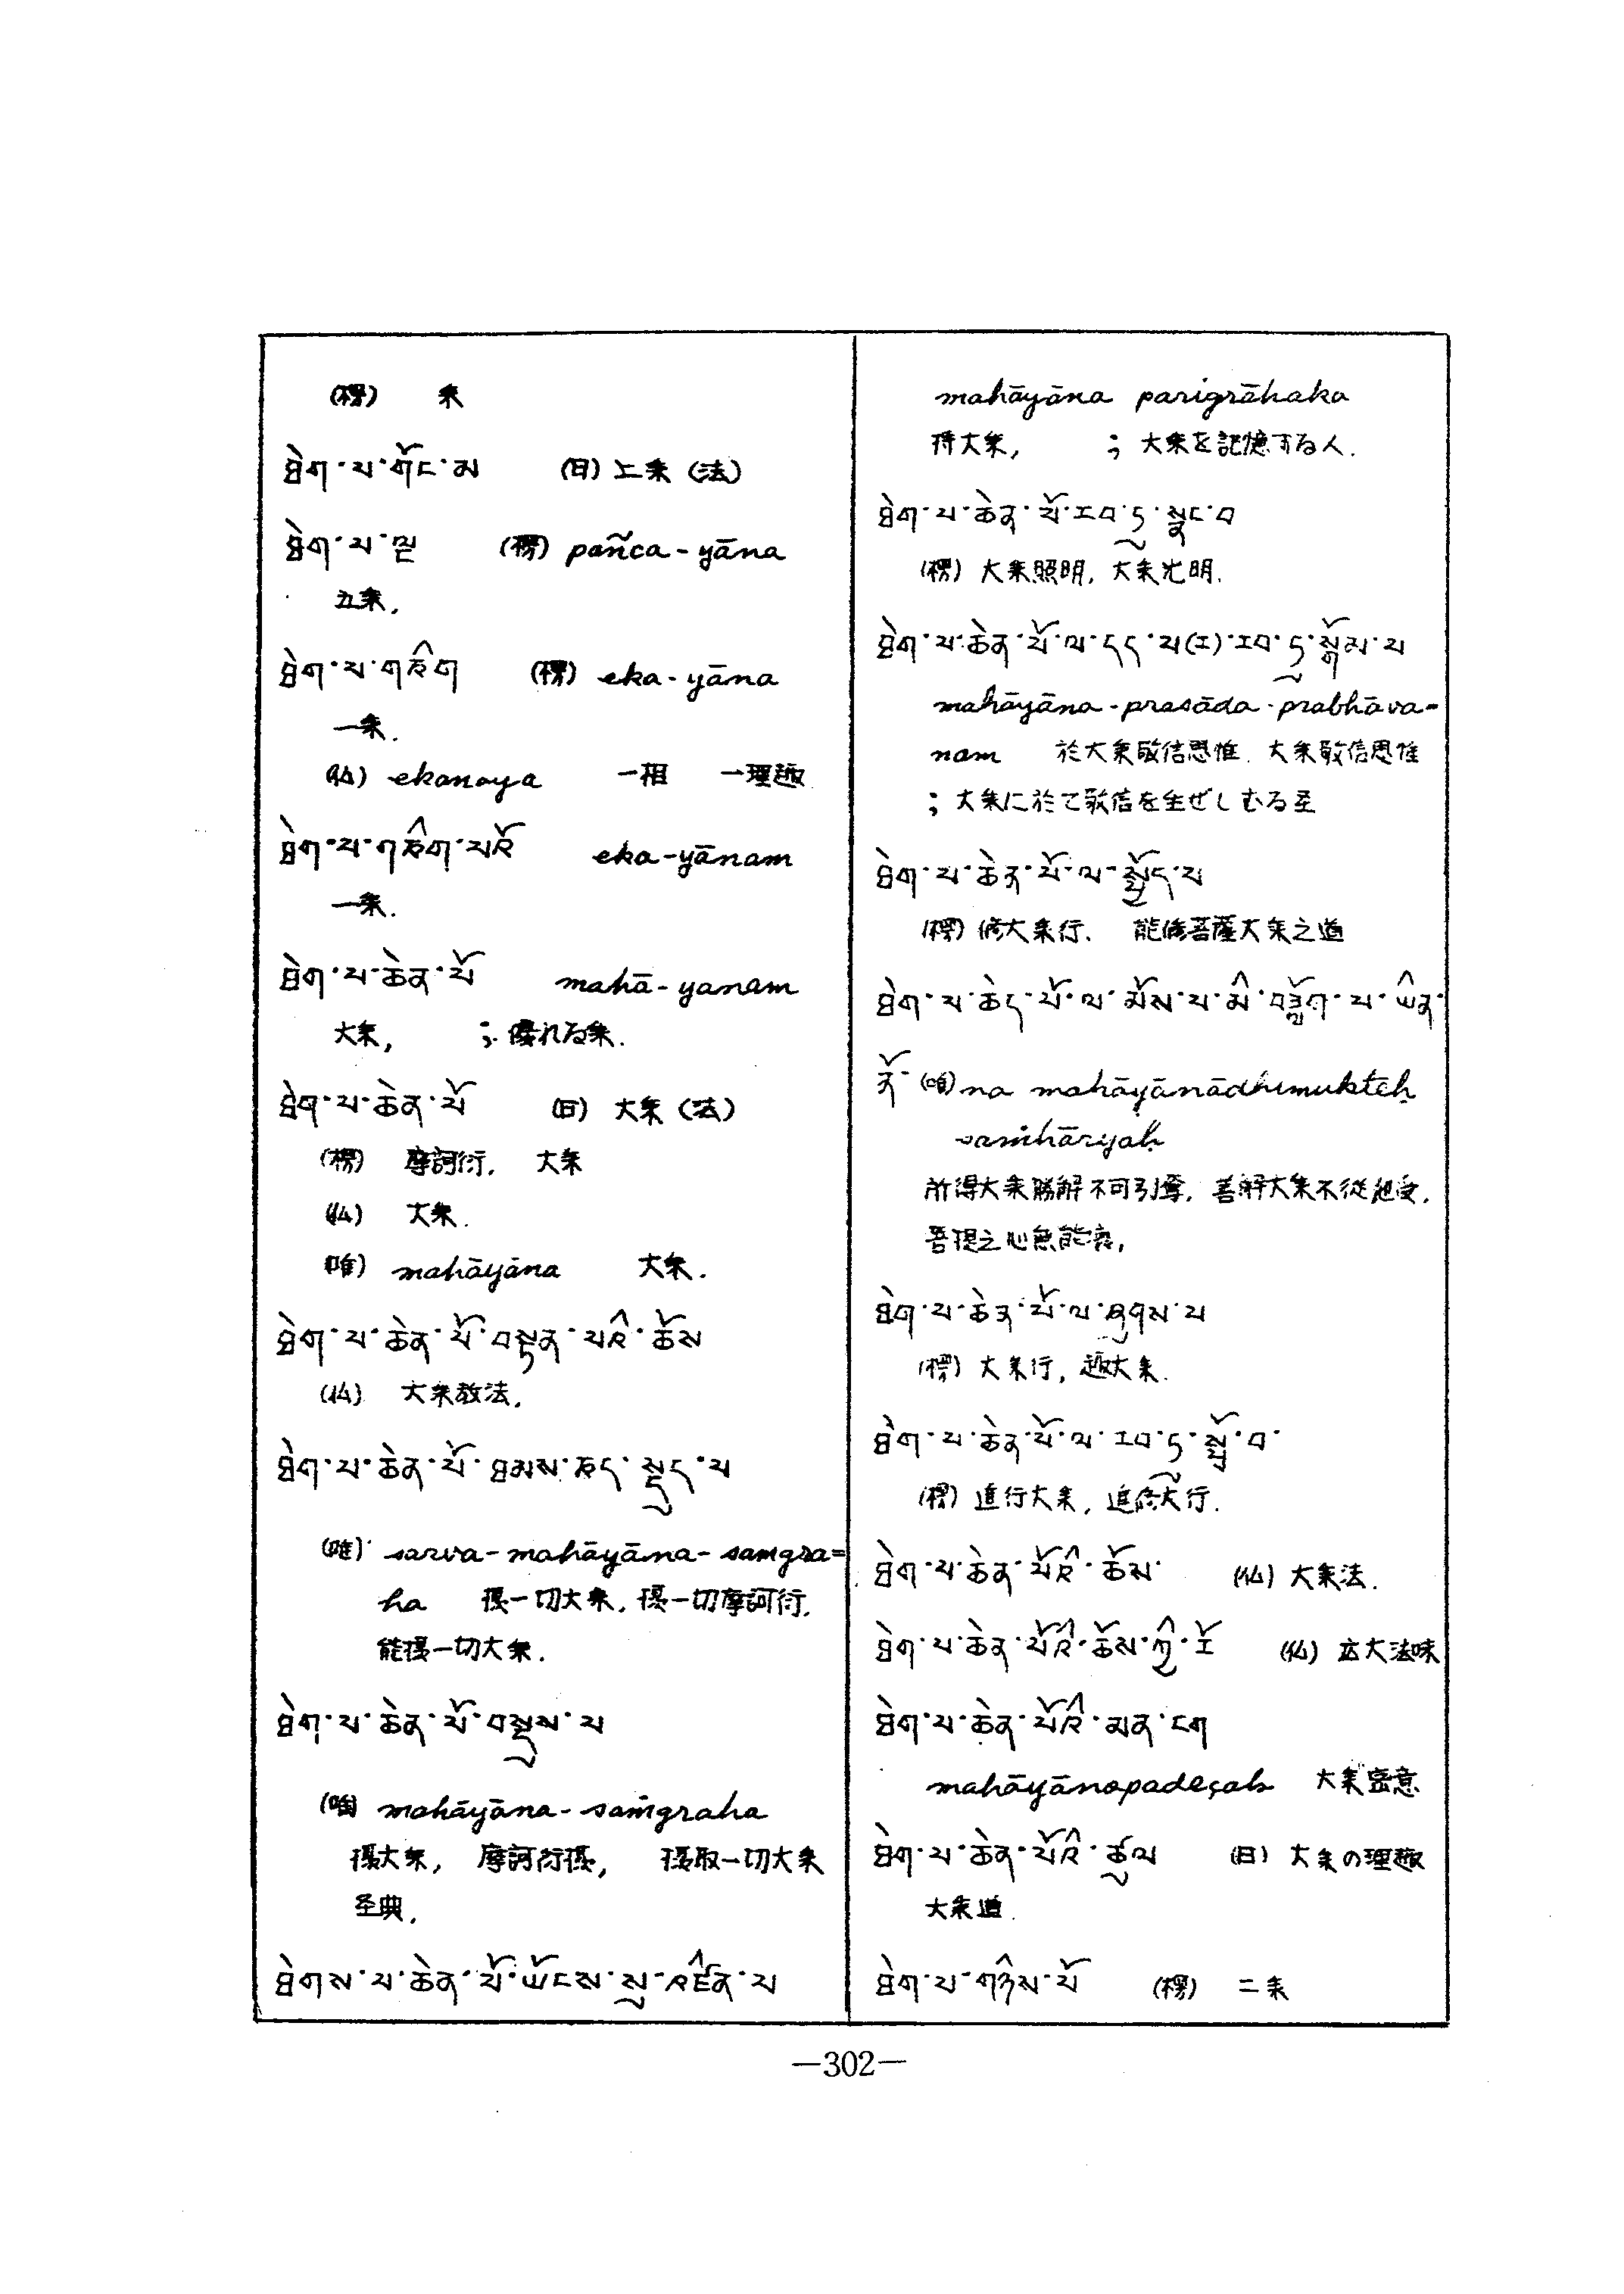 (楞) 乘
ཐེག་པ་གོང་མ (日) 上乘 (法)
ཐེག་པ་ལྔ (楞) pañca-yāna
五乘.
ཐེག་པ་གཅིག (楞) eka-yāna
一乘.
(仏) ekanaya 一相 一理趣
ཐེག་པ་གཅིག་པའོ eka-yānam
一乘.
ཐེག་པ་ཆེན་པོ mahā-yanam
大乘, ; 優れる乘.
ཐེག་པ་ཆེན་པོ (日) 大乘 (法)
(楞) 摩訶衍. 大乘
(仏) 大乘.
(唯) mahāyāna 大乘.
ཐེག་པ་ཆེན་པོ་བསྟན་པའི་ཆོས
(仏) 大乘教法.
ཐེག་པ་ཆེན་པོ་ཐམས་ཅད་སྡུད་པ
(唯) sarva-mahāyāna-saṃgra=
ha 摂一切大乘, 摂一切摩訶衍.
能摂一切大乘.
ཐེག་པ་ཆེན་པོ་བསྡུས་པ
(唯) mahāyāna-saṁgraha
摂大乘, 摩訶衍摂, 摂取一切大乘
圣典.
ཐེགས་པ་ཆེན་པོ་ཡོངས་སུ་འཛིན་པ
mahāyāna parigrāhaka
持大乘, ; 大乘を記憶する人.
ཐེག་པ་ཆེན་པོ་རབ་ཏུ་སྣང་བ
(楞) 大乘照明, 大乘光明.
ཐེག་པ་ཆེན་པོ་ལ་དད་པ(ར)་རབ་ཏུ་སྒོམ་པ
mahāyāna-prasāda-prabhāva=
nam 於大乘敬信思惟. 大乘敬信思惟
; 大乘に於て敬信を生ぜしむる至
ཐེག་པ་ཆེན་པོ་ལ་སྤྱོད་པ
(楞) 修大乘行. 能修菩薩大乘之道
ཐེག་པ་ཆེད་པོ་ལ་མོས་པ་མི་བཟློག་པ་ཡིན་
ནོ་ (唯) na mahāyānādhimukteḥ
saṁhāryaḥ
所得大乘勝解不可引奪, 善解大乘不從他受.
菩提之心無能壞,
ཐེག་པ་ཆེན་པོ་ལ་ཞུགས་པ
(楞) 大乘行, 趣大乘.
ཐེག་པ་ཆེན་པོ་ལ་རབ་ཏུ་སྤྱོ་བ་
(楞) 進行大乘, 進修大行.
ཐེག་པ་ཆེན་པོའི་ཆོས་ (仏) 大乘法.
ཐེག་པ་ཆེན་པོའི་ཆོས་ཀྱི་རོ (仏) 広大法味
ཐེག་པ་ཆེན་པོའི་མན་ངག
mahāyānopadeçaḥ 大乘密意
ཐེག་པ་ཆེན་པོའི་ཚུལ (日) 大乘の理趣
大乘道.
ཐེག་པ་གཉིས་པོ (楞) 二乘
—302—